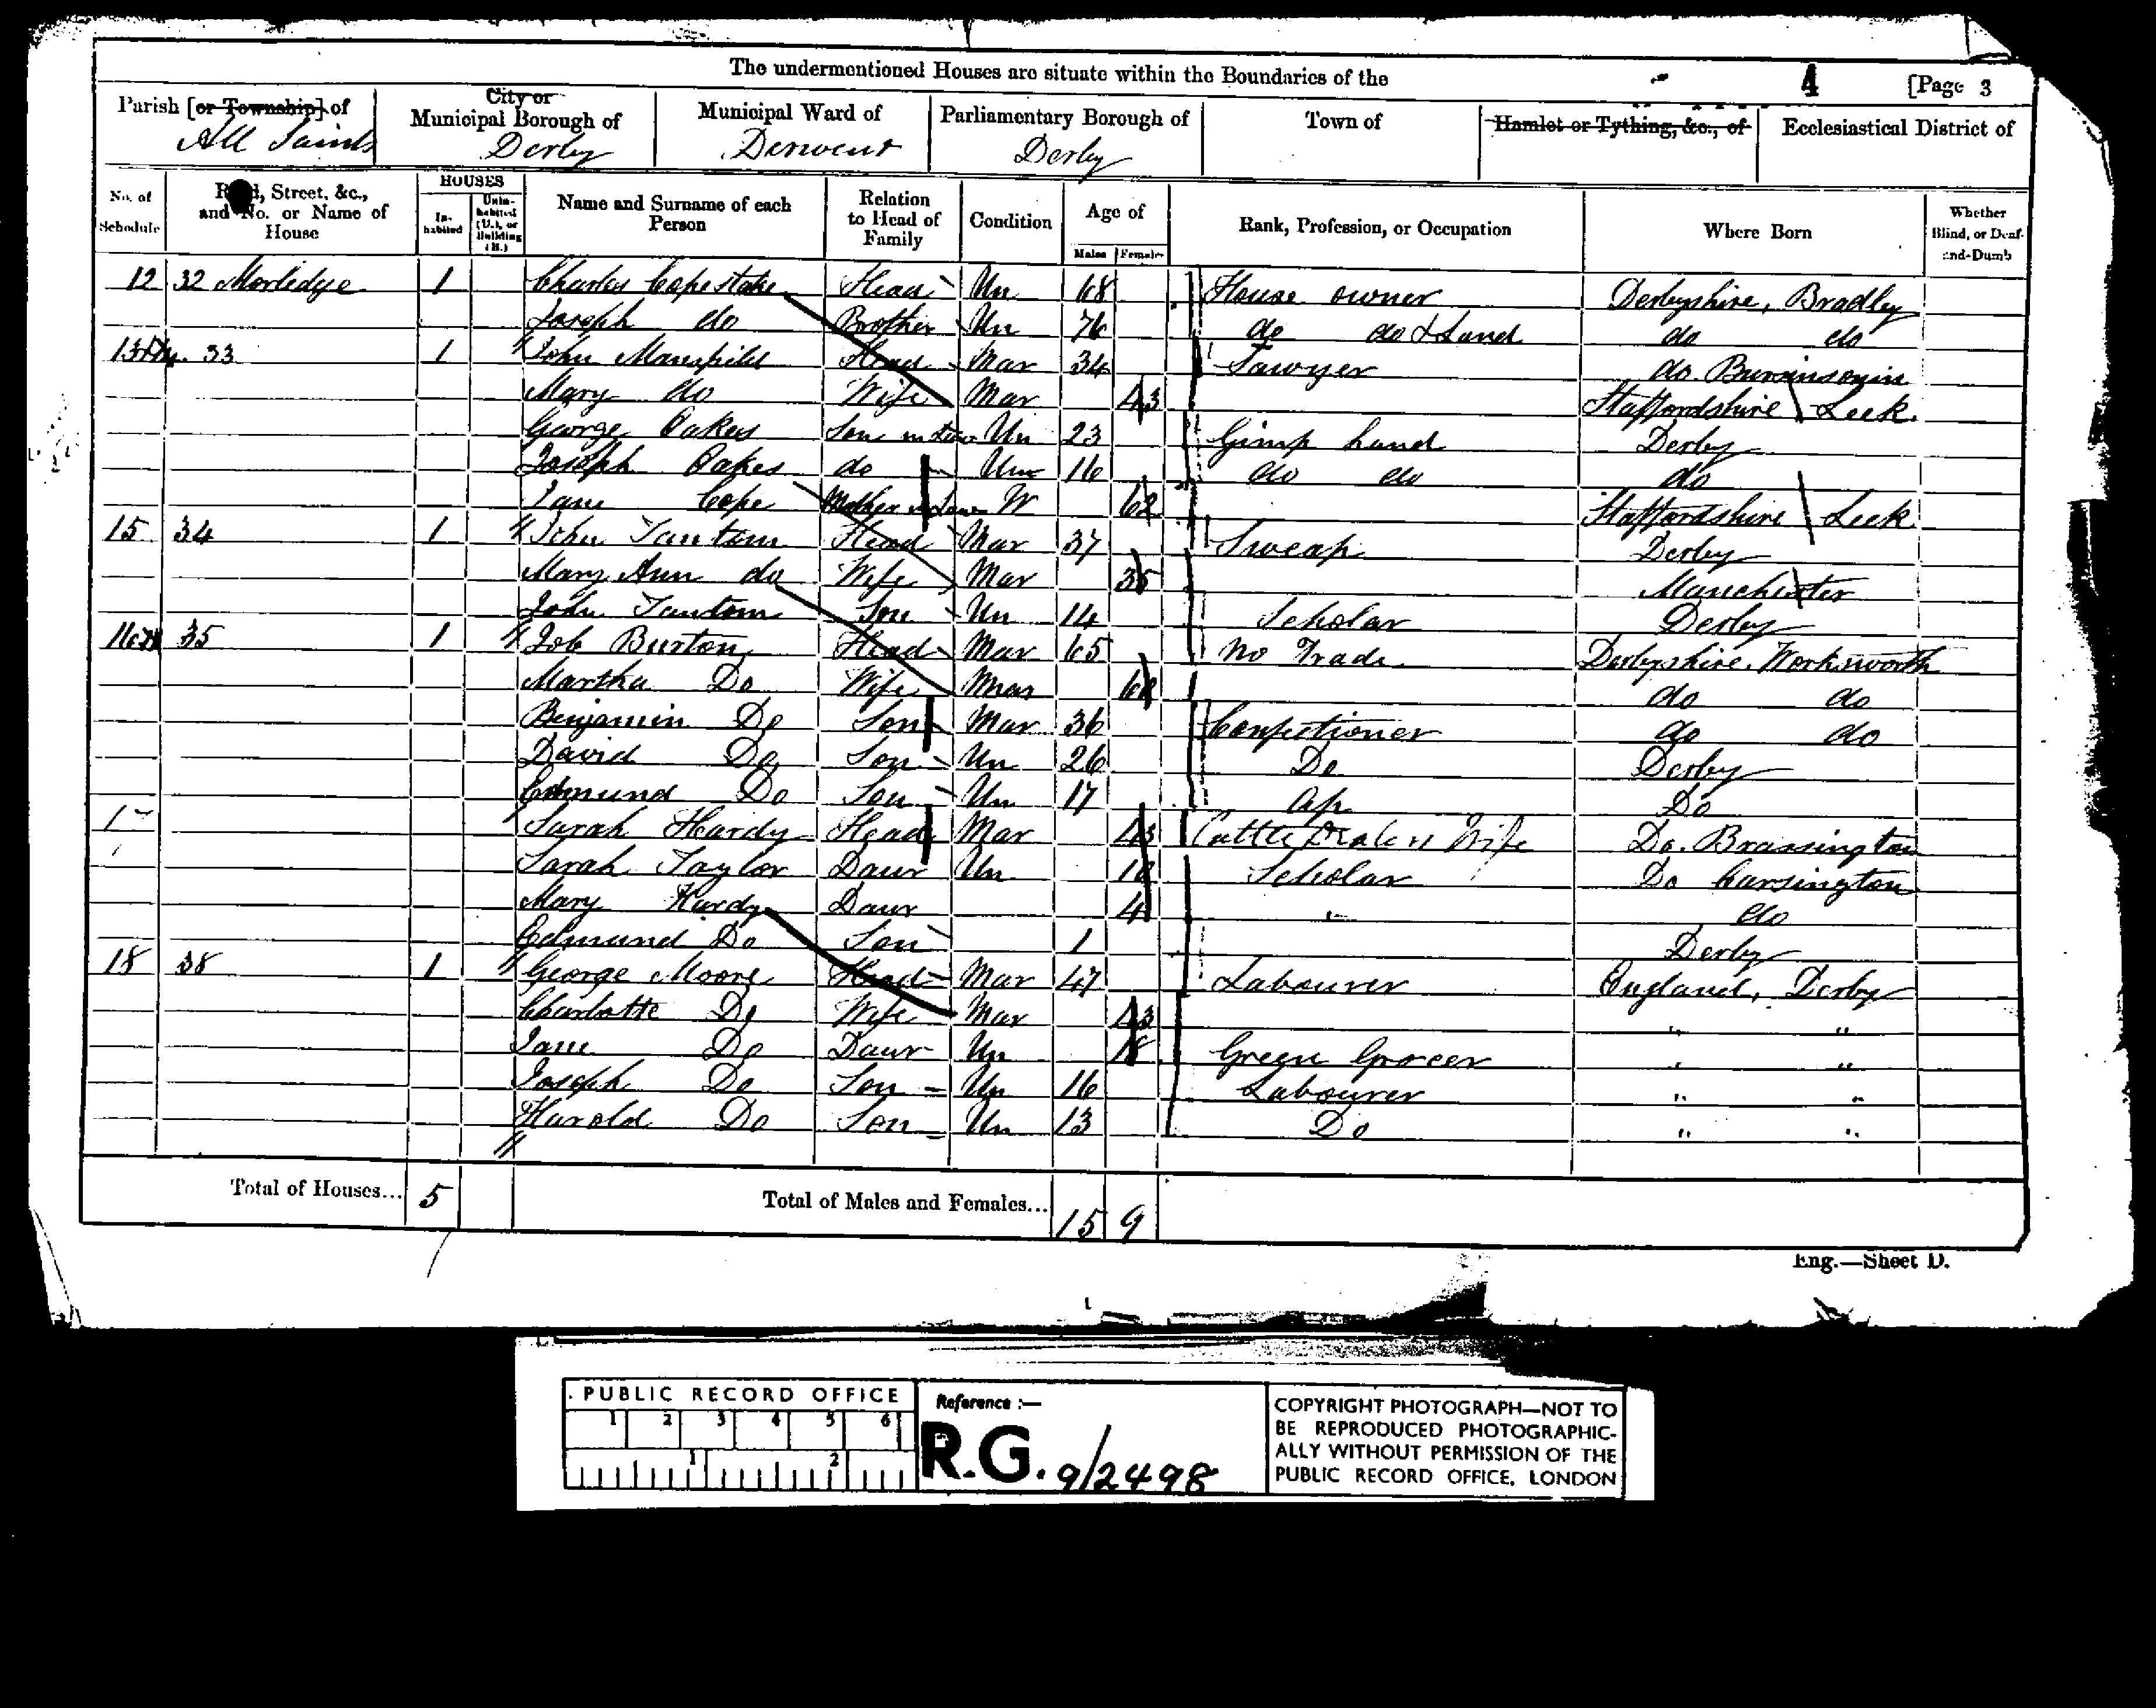 The undermentioned Houses are situate within the Boundaries of the
4 [Page 3
Parish [or Township] of All Saints
City or Municipal Borough of Derby
Municipal Ward of Derwent
Parliamentary Borough of Derby
Town of
Hamlet or Tything, &c., of
Ecclesiastical District of
No. of Schedule
Street, &c., and No. or Name of House
HOUSES
Inhabited
Uninhabited (U.), or Building (B.)
Name and Surname of each Person
Relation to Head of Family
Condition
Age of
Males Females
Rank, Profession, or Occupation
Where Born
Whether Blind, or Deaf-and-Dumb
12 32 Morledge 1 Charles Copestake Head Un 68 House owner Derbyshire, Bradley
Joseph do Brother Un 76 do do & Land do do
33 1 John Mansfield Head Mar 34 Sawyer do
Mary do Wife Mar 43 Staffordshire Leek
George Oakes Son in Law Un 23 Gimp hand Derby
Joseph Oakes do Un 16 do do do
Jane Cope Mother in Law W 62 Staffordshire Leek
15 34 1 John Tantum Head Mar 37 Sweap Derby
Mary Ann do Wife Mar 35 Manchester
John Tantom Son Un 14 Scholar Derby
16 35 1 Job Burton Head Mar 65 No Trade Derbyshire. Workswworth
Martha Do Wife Mar 68 do do
Benjamin Do Son Mar 36 Confectioner do do
David Do Son Un 26 Do Derby
Edmund Do Son Un 17 Ap Do
Sarah Hardy Head Mar 43 Cattle Dealers Wife Do. Brassington
Sarah Taylor Daur Un Scholar Do Carsington
Mary Hardy Daur 4 " do
Edmund Do Son 1 Derby
18 38 1 George Moore Head Mar 47 Labourer England, Derby
Charlotte Do Wife Mar 43 " "
Jane Do Daur Un 18 Green Grocer " "
Joseph Do Son Un 16 Labourer " "
Harold Do Son Un 13 Do " "
Total of Houses... 5
Total of Males and Females... 15 9
Eng.—Sheet D.
PUBLIC RECORD OFFICE
1 2 3 4 5 6
1 2
Reference :—
R.G. 9/2498
COPYRIGHT PHOTOGRAPH—NOT TO
BE REPRODUCED PHOTOGRAPHIC-
ALLY WITHOUT PERMISSION OF THE
PUBLIC RECORD OFFICE, LONDON